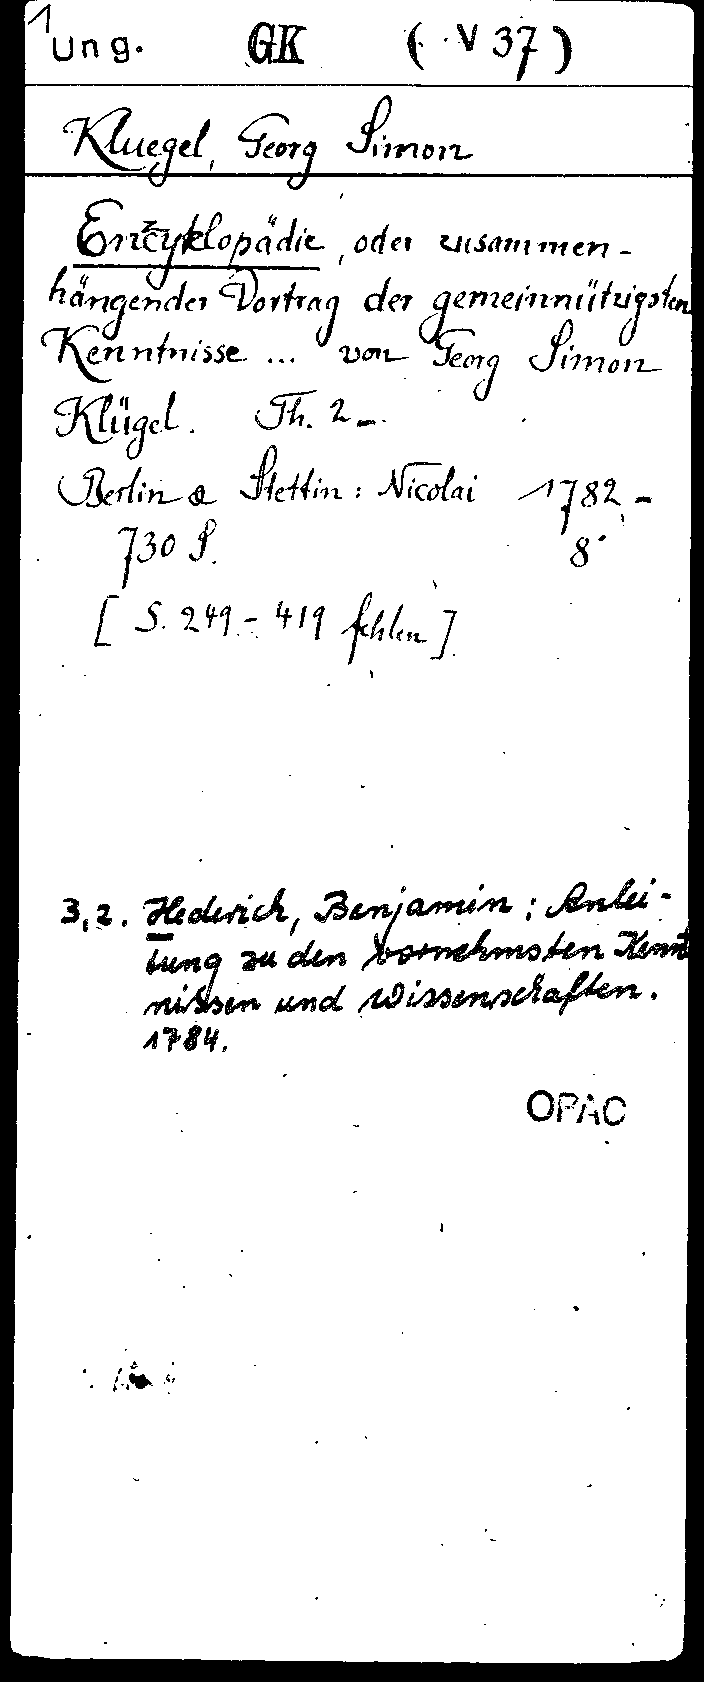 1
Ung. GK (. V 37)
Kluegel, Georg Simon
Encyklopädie, oder zusammen-
hängender Vortrag der gemeinnützigsten
Kenntnisse ... von Georg Simon
Klügel. Th. 2-.
Berlin & Stettin: Nicolai 1782,-
730 S. 8°
[S. 249-419 fehlen]
3,2. Hederich, Benjamin: Anlei-
tung zu den vornehmsten Kennt
nissen und Wissenschaften.
1784.
OPAC